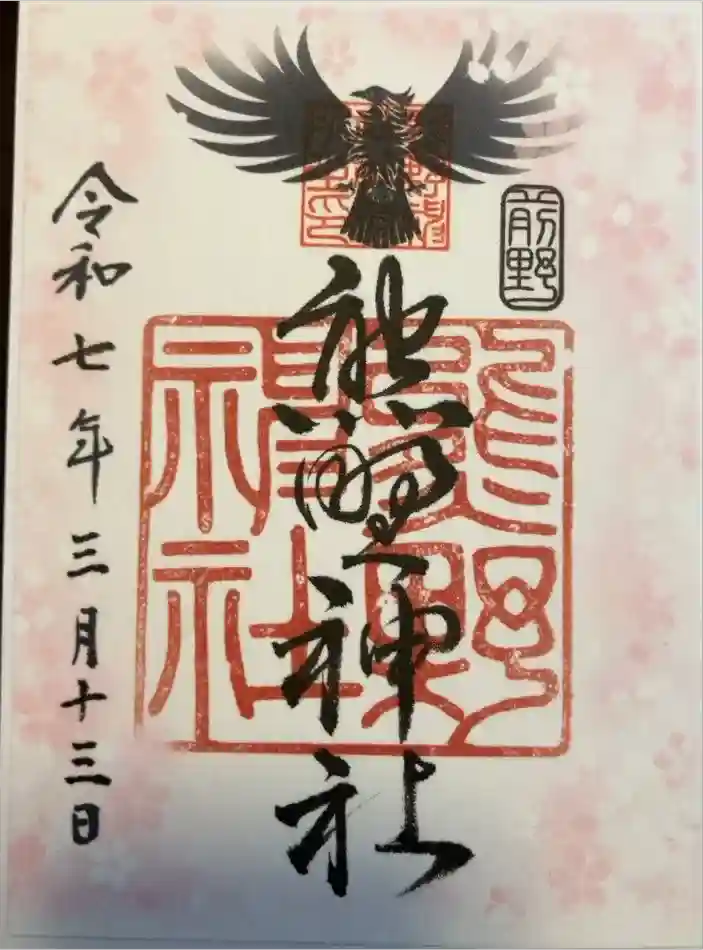 前野
熊野神社
熊野神社
令和七年三月十三日